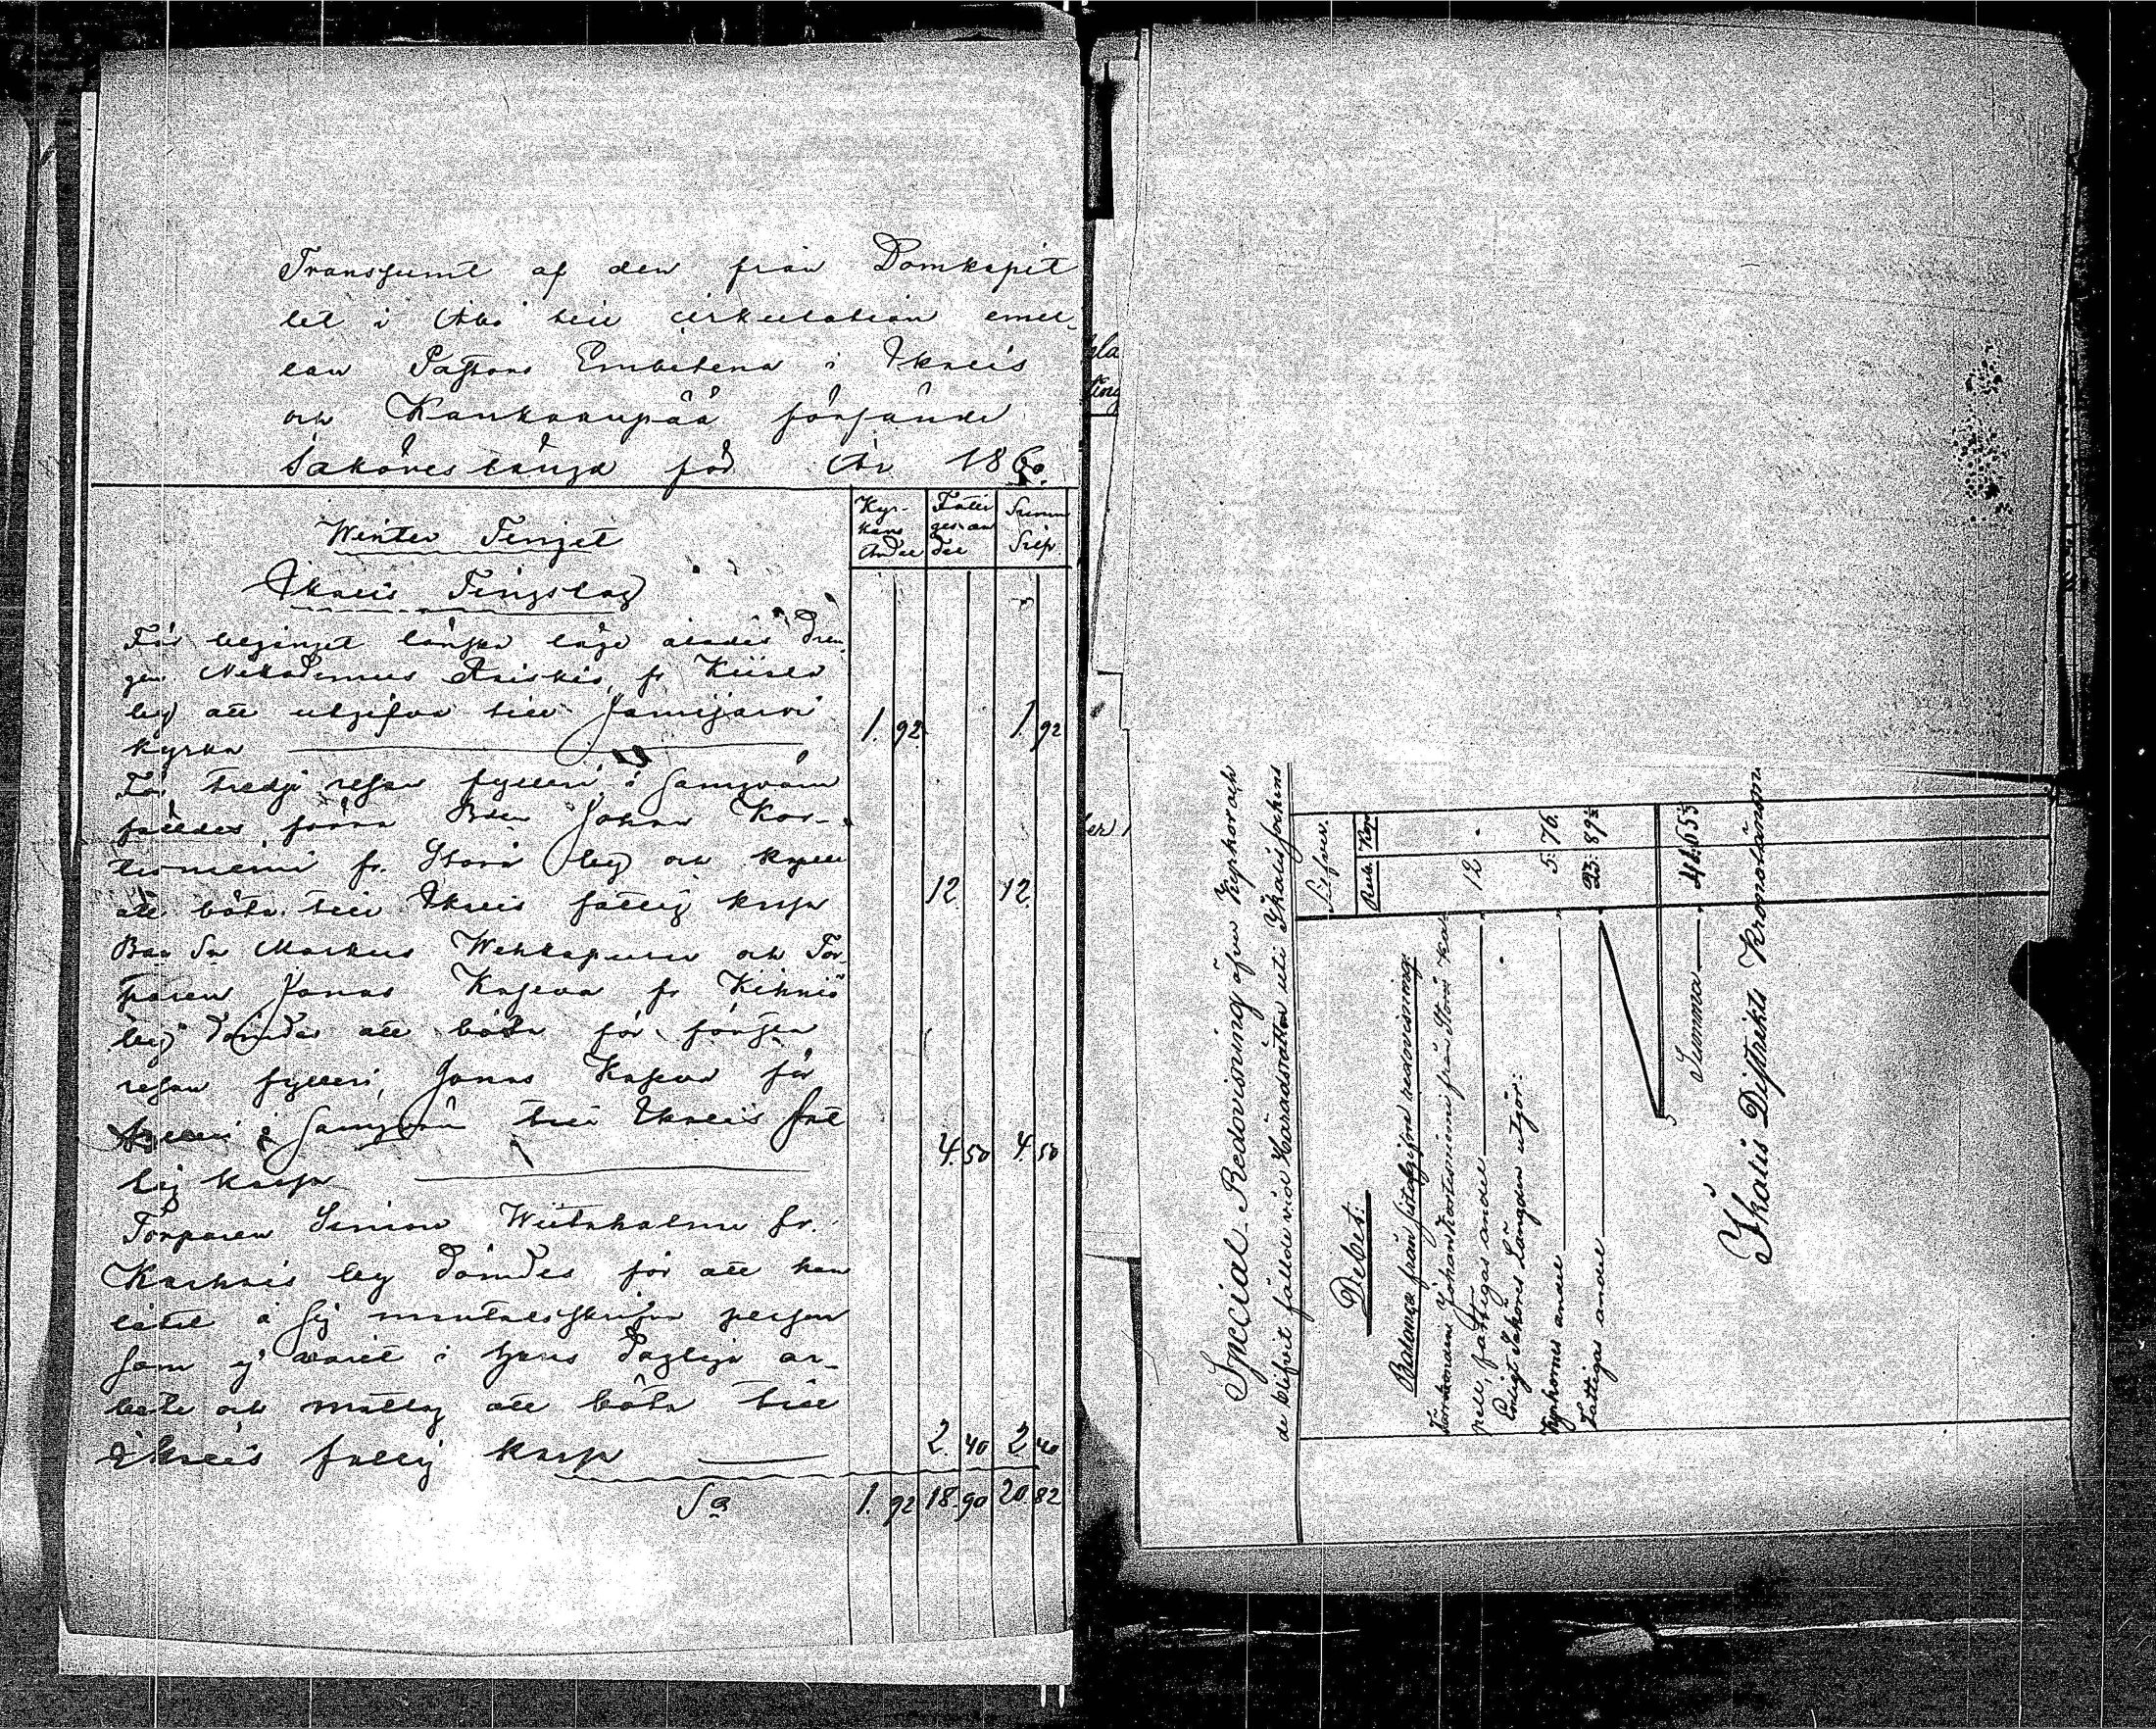 Transsumt af den från Domkapit
let i Åbo till cirkulation emel-
lan Pastors Embetena i Ikalis
och Kankaanpää försände
Saköreslängd för År 1860.
Kyr-
kans
Andel
Fatti
gas an
del
Summa
Silfv
Winter Tinget
Ikalis Tingslag
För begånget lönska läge ålades Drän
gen Nikodemus fr
by att utgifva till Jämijärvi
kyrka 1. 92 1. 92
För tredje resan fylleri i samqväm
fälldes förra Bden Johan Kor-
tesniemi fr. Storå by och
att böta till Ikalis fattig kassa 12 12.
Markus och Tor-
paren Jonas Kaseva fr Kihniö
by dömdes att böta för första
resan fylleri, Jonas Kaseva för
fylleri i samqväm till Ikalis fat
tig kassa 4. 50 4. 50
Torparen Simon fr.
by dömdes för att han
låtit å sig mantalsskrifva person
som ej varit i hans dagliga ar-
bete och matlag att böta till
Ikalis fattig kassa 2. 40 2 40
Sa 1. 92 18. 90 20. 82
Special Redovisning öfver Kyrkor och
de blifvit fällde vid Häradsrätten uti Ikalis sockens
Silfver.
Rub. Kop.
Debet:
Balance från sistafgifne redovisning.
Johan Kortesniemi från Storå ka-
pell, fattigas andel 12 .
Enligt Saköres Längden utgör:
Kyrkornes andel 5. 76.
Fattigas andel 23. 89½
Summa 41. 65½
Ikalis Distrikts Kronolänsman